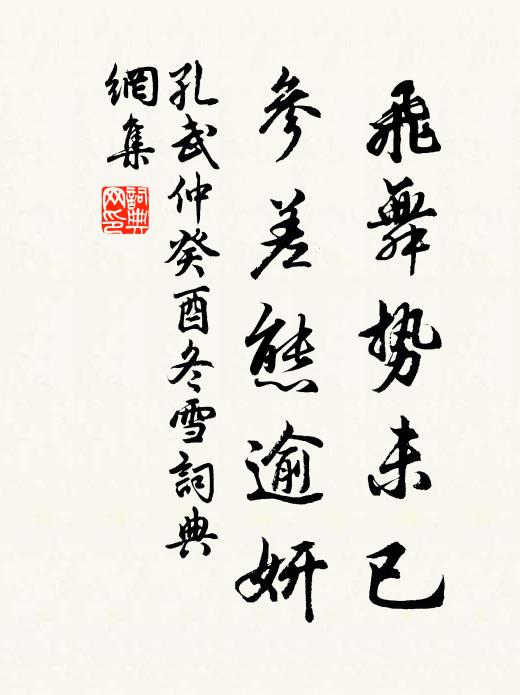 飛舞勢未已
參差態逾妍
孔武仲癸酉冬雪詞典
網集
詞典
网印